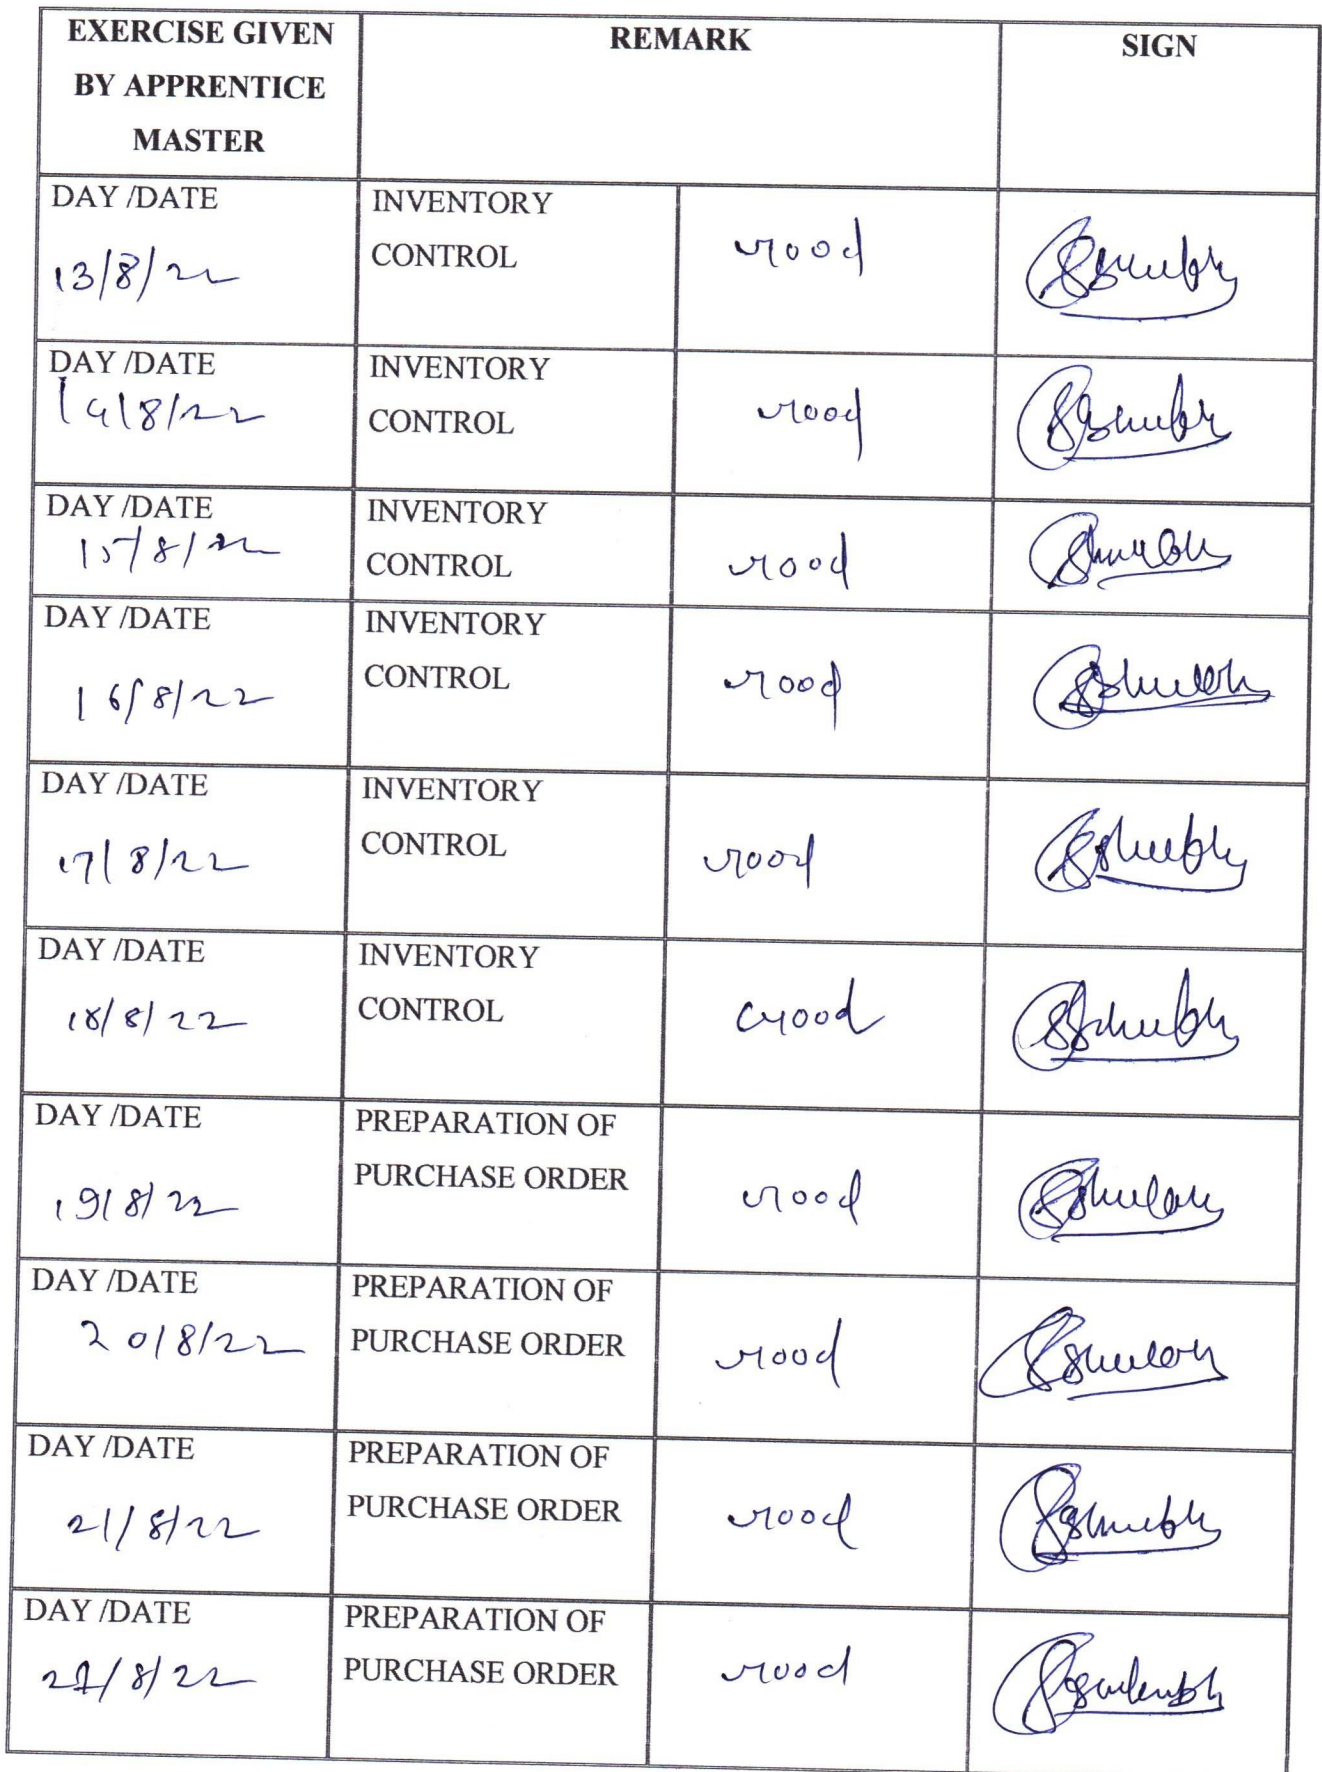 EXERCISE GIVEN
BY APPRENTICE
MASTER
REMARK
SIGN
DAY /DATE
13/8/22
INVENTORY
CONTROL
Good
DAY /DATE
14/8/22
INVENTORY
CONTROL
Good
DAY /DATE
15/8/22
INVENTORY
CONTROL
Good
DAY /DATE
16/8/22
INVENTORY
CONTROL
Good
DAY /DATE
17/8/22
INVENTORY
CONTROL
Good
DAY /DATE
18/8/22
INVENTORY
CONTROL
Good
DAY /DATE
19/8/22
PREPARATION OF
PURCHASE ORDER
Good
DAY /DATE
20/8/22
PREPARATION OF
PURCHASE ORDER
Good
DAY /DATE
21/8/22
PREPARATION OF
PURCHASE ORDER
Good
DAY /DATE
PREPARATION OF
PURCHASE ORDER
Good